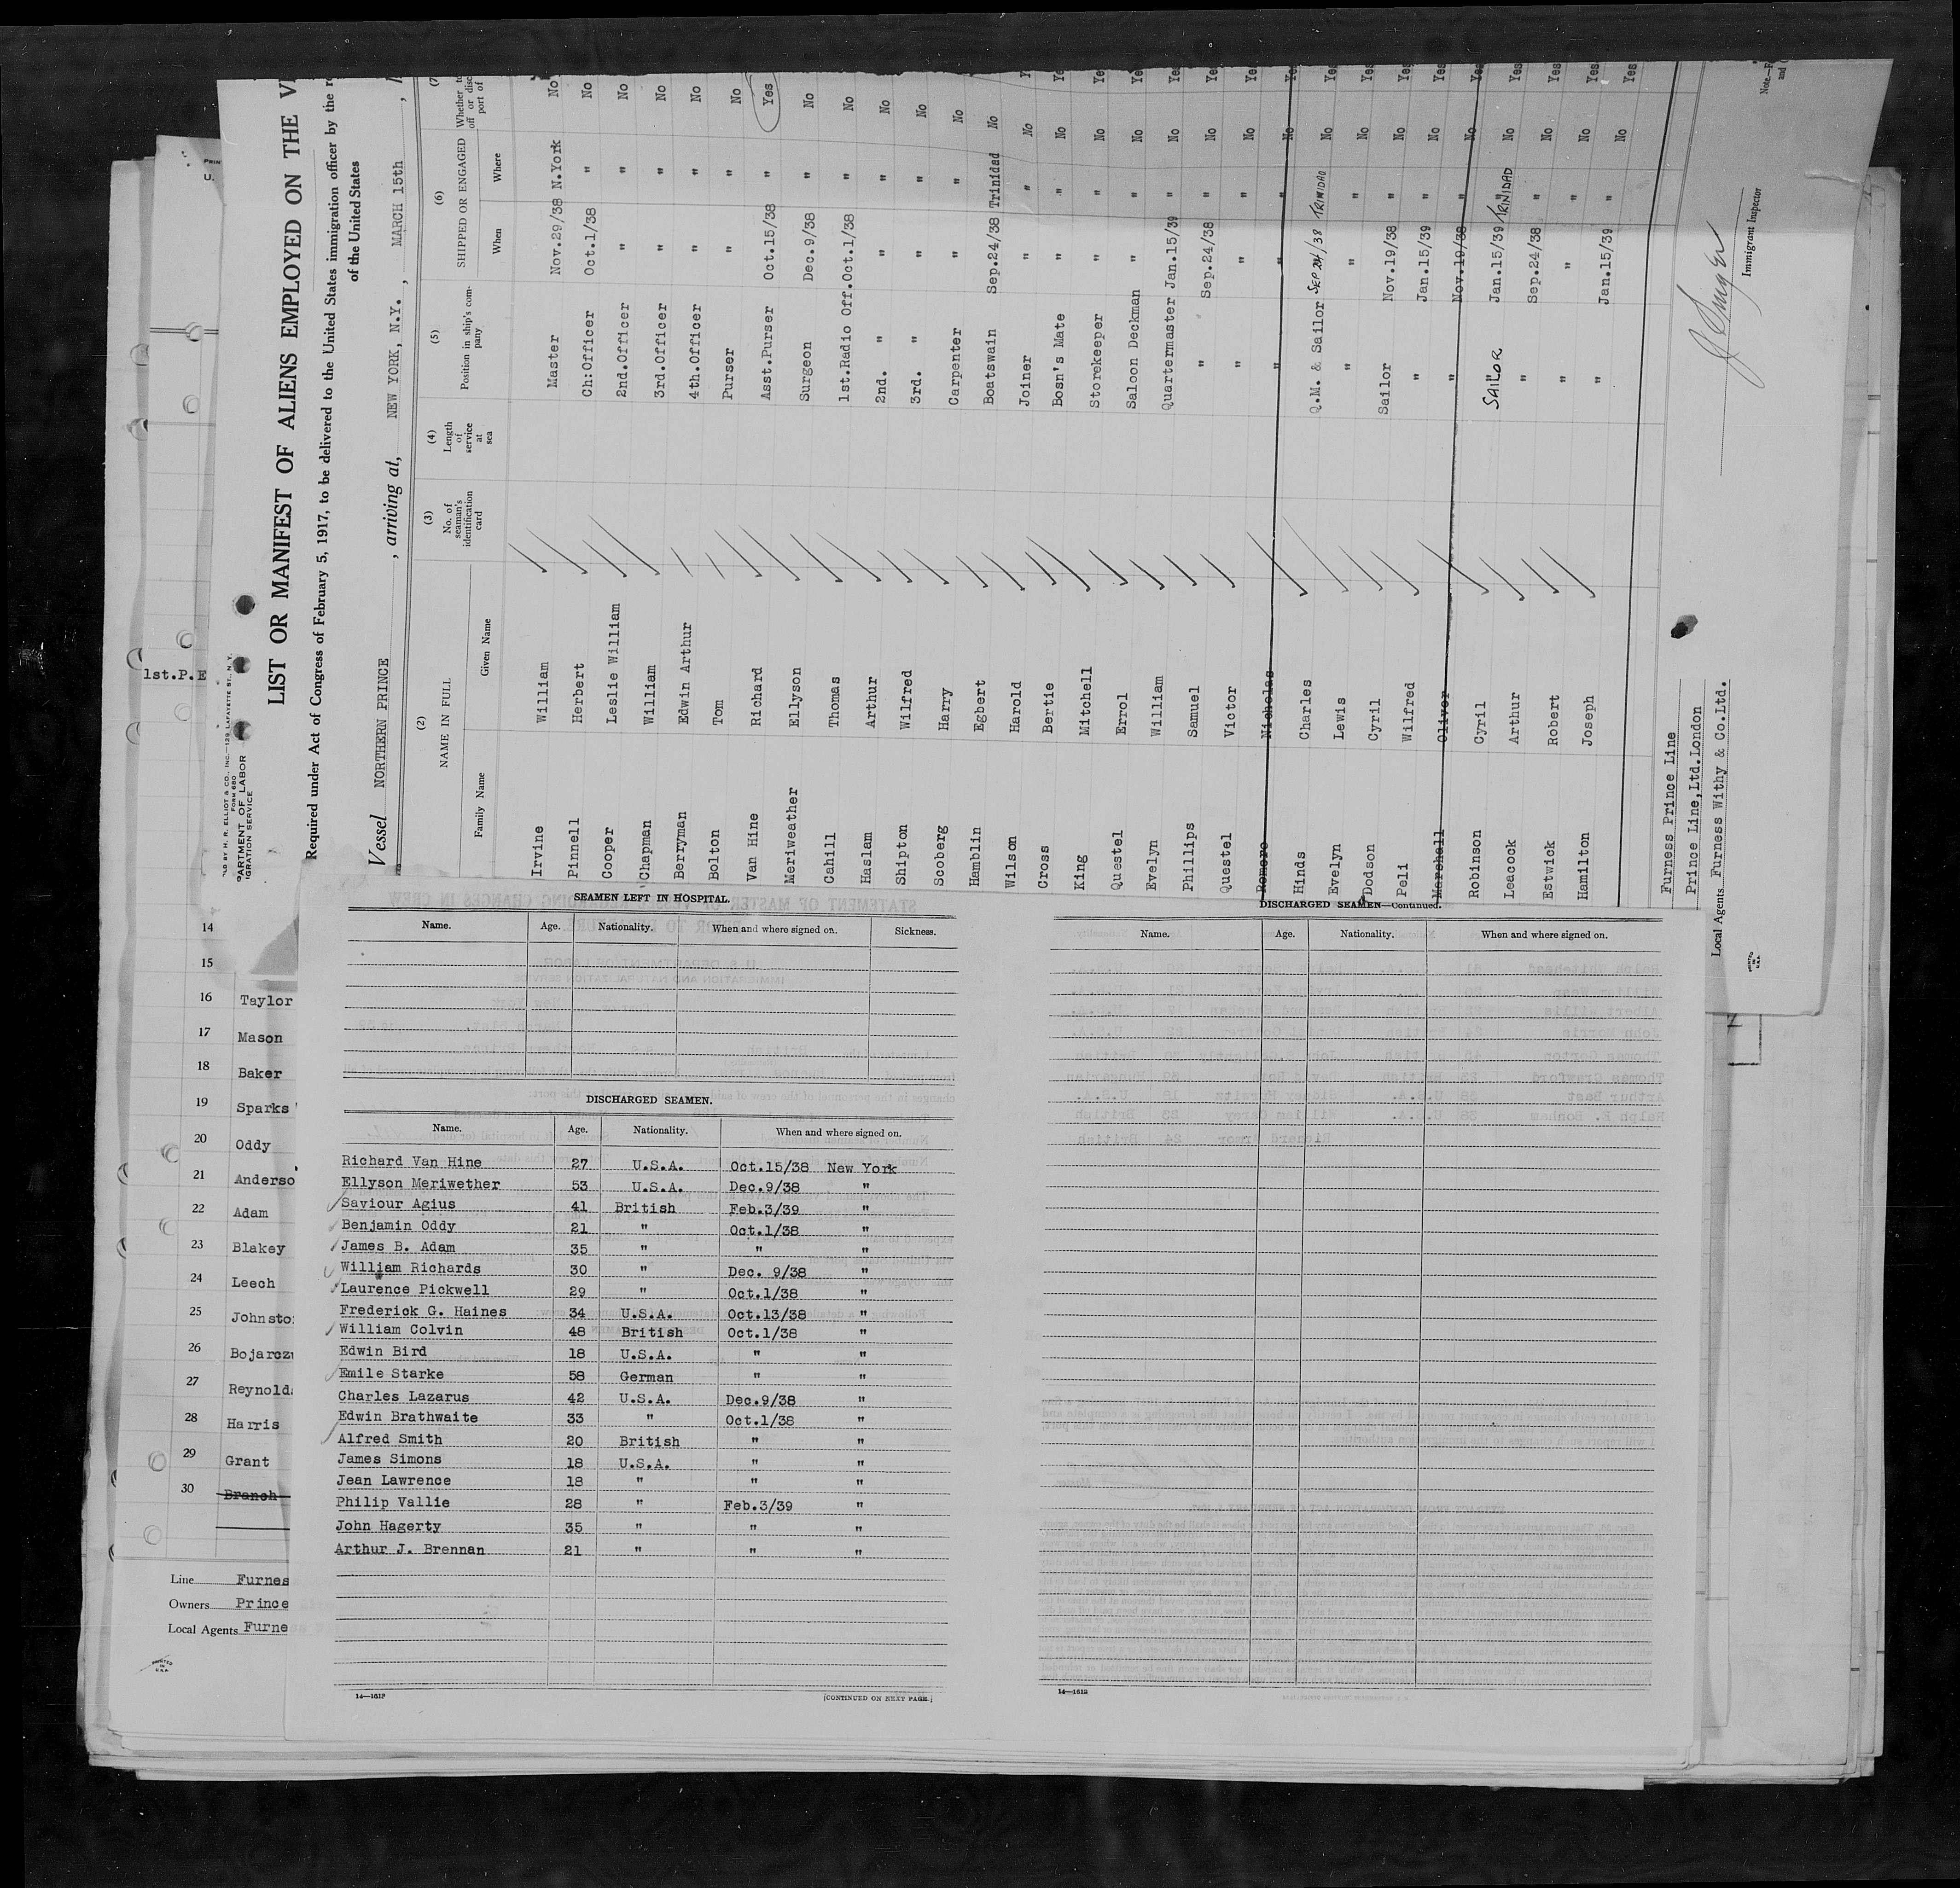 LIST OR MANIFEST OF ALIENS EMPLOYED ON THE
Required under Act of Congress of February 5, 1917, to be delivered to the United States immigration officer by the
of the United States
Vessel NORTHERN PRINCE, arriving at, NEW YORK, N.Y., MARCH 15th,
(2) (3) (4) (5) (6) (7)
NAME IN FULL No. of seaman's identification card Length of service at sea Position in ship's company SHIPPED OR ENGAGED
Family Name Given Name When Where
Irvine William Master Nov.29/38 N.York No
Pinnell Herbert Ch:Officer Oct.1/38 " No
Cooper Leslie William 2nd.Officer " " No
Chapman William 3rd.Officer " " No
Berryman Edwin Arthur 4th.Officer " " No
Bolton Tom Purser " " No
Van Hine Richard Asst.Purser Oct.15/38 " Yes
Meriweather Ellyson Surgeon Dec.9/38 " No
Cahill Thomas 1st.Radio Off. Oct.1/38 " No
Haslam Arthur 2nd. " " " No
Shipton Wilfred 3rd. " " " No
Scoberg Harry Carpenter " " No
Hamblin Egbert Boatswain Sep.24/38 Trinidad No
Wilson Harold Joiner " " No
Cross Bertie Bosn's Mate " " No
King Mitchell Storekeeper " " No
Questel Errol Saloon Deckman " " No
Evelyn William Quartermaster Jan.15/39 " No
Phillips Samuel " Sep.24/38 " No
Questel Victor " " " No
Romero Nicholas " " " No
Hinds Charles Q.M. & Sailor SEP 24/38 TRINIDAD No
Evelyn Lewis " " " No
Dodson Cyril Sailor Nov.19/38 " No
Peli Wilfred " Jan.15/39 " No
Marshall Oliver " Nov.19/38 " No
Robinson Cyril SAILOR Jan.15/39 TRINIDAD No
Leacock Arthur " Sep.24/38 " No
Estwick Robert " " " No
Hamilton Joseph " Jan.15/39 " No
Furness Prince Line
Prince Line,Ltd.London
Local Agents Furness Withy & Co.Ltd.
Immigrant Inspector
1st.P.E
14
15
16 Taylor
17 Mason
18 Baker
19 Sparks
20 Oddy
21 Anderso
22 Adam
23 Blakey
24 Leech
25 Johnsto
26 Bojarcz
27 Reynold
28 Harris
29 Grant
30 Branch
Line Furnes
Owners Prince
Local Agents Furne
PRINTED IN U.S.A.
SEAMEN LEFT IN HOSPITAL.
Name. Age. Nationality. When and where signed on. Sickness.
DISCHARGED SEAMEN.
Name. Age. Nationality. When and where signed on.
Richard Van Hine 27 U.S.A. Oct.15/38 New York
Ellyson Meriwether 53 U.S.A. Dec.9/38 "
Saviour Agius 41 British Feb.3/39 "
Benjamin Oddy 21 " Oct.1/38 "
James B. Adam 35 " " "
William Richards 30 " Dec. 9/38 "
Laurence Pickwell 29 " Oct.1/38 "
Frederick G. Haines 34 U.S.A. Oct.13/38 "
William Colvin 48 British Oct.1/38 "
Edwin Bird 18 U.S.A. " "
Emile Starke 58 German " "
Charles Lazarus 42 U.S.A. Dec.9/38 "
Edwin Brathwaite 33 " Oct.1/38 "
Alfred Smith 20 British " "
James Simons 18 U.S.A. " "
Jean Lawrence 18 " " "
Philip Vallie 28 " Feb.3/39 "
John Hagerty 35 " " "
Arthur J. Brennan 21 " " "
[CONTINUED ON NEXT PAGE.]
DISCHARGED SEAMEN—Continued.
Name. Age. Nationality. When and where signed on.
14—1612